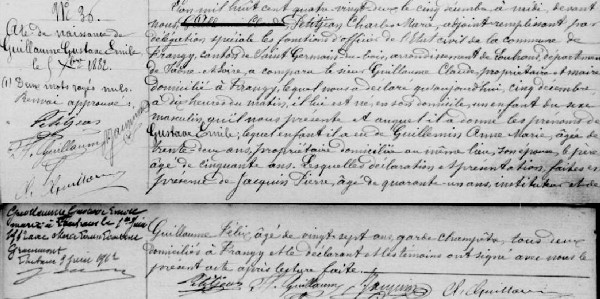 N° 36.
Acte de naissance de
Guillaume Gustave Emile
le 5 Xbre 1882.
(1) Deux mots rayés nuls.
Renvoi approuvé
Petitjean
F. Guillaume Jacquin
Cl. Guillaume
L'an mil huit cent quatre vingt deux le cinq décembre à midi, devant
nous, Petitjean Charles Marie, adjoint remplissant par
délégation spéciale les fonctions d'officier de l'Etat civil de la commune de
Frangy, canton de Saint Germain du bois, arrondissement de Louhans, département
de Saône et Loire, a comparu le sieur Guillaume Claude, propriétaire et maire
domicilié à Frangy, lequel nous a déclaré qu'aujourd'hui, cinq décembre
à dix heures du matin, il lui est né, en son domicile, un enfant du sexe
masculin, qu'il nous présente et auquel il a donné les prénoms de
Gustave Emile, lequel enfant il a eu de Guillemin Anne Marie, âgée de
trente deux ans, propriétaire domiciliée au même lieu, son épouse, le père
âgé de cinquante ans. Lesquelles déclaration et présentation faites en
présence de Jacquin Pierre, âgé de quarante un ans, instituteur et de
Guillaume Gustave Emile
marié à le 1er Juin
Grammont
9 Juin 1962
Guillaume Félix âgé de vingt sept ans garde champêtre, tous deux
domiciliés à Frangy et le déclarant et les témoins ont signé avec nous le
présent acte après lecture faite.
Petitjean F. Guillaume Jacquin Cl. Guillaume